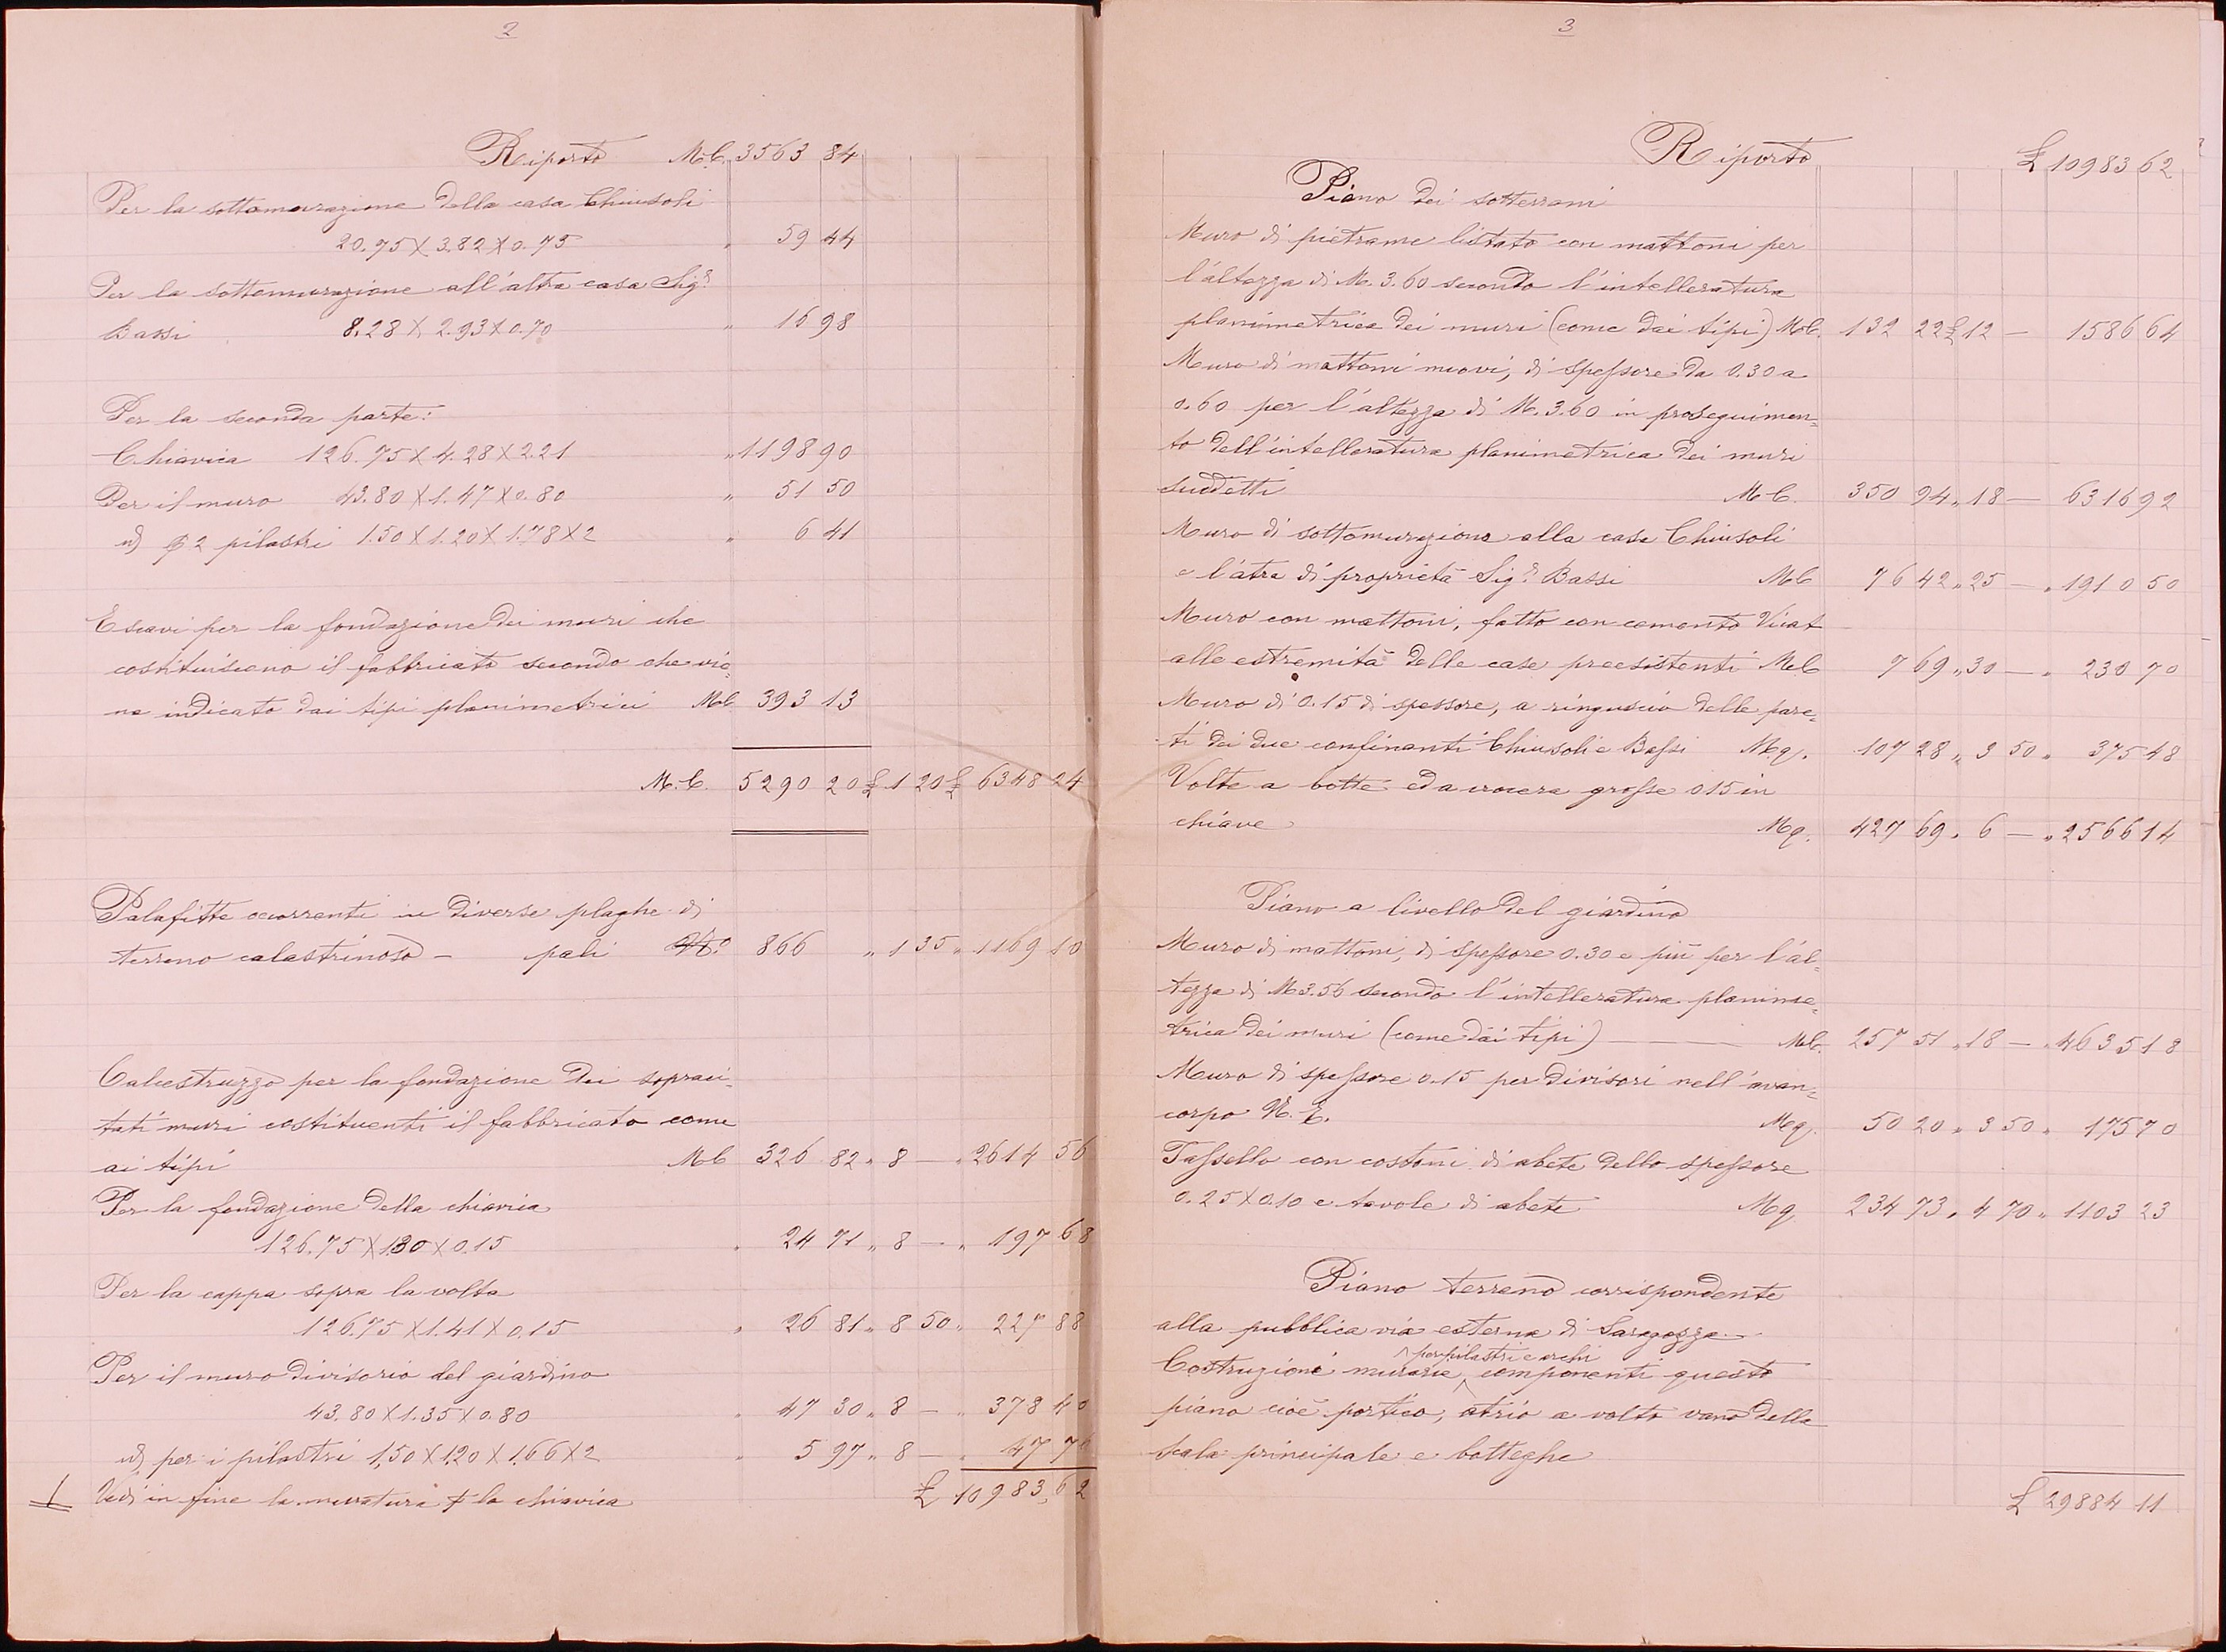 2
Riporto M.C. 3563 84
Per la sottomurazione della casa Chiusoli
20.75 X 3.82 X 0.75 " 59 44
Per la sottomurazione all'altra casa Sig.r
Bassi 8.28 X 2.93 X 0.70 " 16 98
Per la seconda parte:
Chiavica 126.75 X 4.28 X 2.21 " 1198 90
Per il muro 43.80 X 1.47 X 0.80 " 51 50
id) p 2 pilastri 1.50 X 1.20 X 1.78 X 2 " 6 41
Escavi per la fondazione dei muri che
costituiscono il fabbricato secondo che vie=
ne indicato dai tipi planimetrici MC 393 13
M.C. 5290 20 £ 1 20 £ 6348 24
Palafitte occorrenti in diverse plaghe di
terreno calastrinoso – pali N.o 866 " 1 35 " 1169 10
Calcestruzzo per la fondazione dei sopraci=
tati muri costituenti il fabbricato come
ai tipi MC 326 82 " 8 — " 2614 56
Per la fondazione della chiavica
126.75 X 130 X 0.15 " 24 71 " 8 — " 197 68
Per la cappa sopra la volta
126.75 X 1.41 X 0.15 " 26 81 " 8 50 " 227 88
Per il muro divisorio del giardino
43.80 X 1.35 X 0.80 " 47 30 " 8 — " 378 40
id) per i pilastri 1,50 X 1,20 X 1,66 X 2 " 5 97 " 8 — " 47 76
Vedi in fine la muratura p la chiavica £ 10983,62
3
Riporto £ 10983 62
Piano dei sotterrani
Muro di pietrame listato con mattoni per
l'altezza di M. 3.60 secondo l'intelleratura
planimetrica dei muri (come dai tipi) MC. 132 22 £ 12 — 1586 64
Muro di mattoni nuovi, di spessore da 0.30 a
0.60 per l'altezza di M. 3.60 in proseguimen=
to dell'intelleratura planimetrica dei muri
suddetti M.C. 350 94 " 18 — 6316 92
Muro di sottomurazione alla casa Chiusoli
e l'atra di proprietà Sig.r Bassi MC 76 42 " 25 — " 1910 50
Muro con mattoni, fatto con cemento Vicat
alle estremità delle case preesistenti MC 7 69 " 30 — " 230 70
Muro di 0.15 di spessore, a ringuscio delle pare=
ti dei due confinanti Chiusoli e Bassi M.q. 107 28 " 3 50 " 375 48
Volte a botte ed a crocera grosse 0.15 in
chiave Mq. 427 69 " 6 — " 2566 14
Piano a livello del giardino
Muro di mattoni, di spessore 0.30 e più per l'al=
tezza di M 3.56 secondo l'intelleratura planime=
trica dei muri (come dai tipi) — MC. 257 51 " 18 — " 4635 18
Muro di spessore 0.15 per divisori nell'avan=
corpo N. E. Mq. 50 20 " 3 50 " 175 70
Tassello con costoni di abete dello spessore
0.25 X 0.10 e tavole di abete Mq 234 73 " 4 70 " 1103 23
Piano terreno corrispondente
alla pubblica via esterna di Saragozza.
per pilastri e archi
Costruzioni murarie componenti questo
piano cioè portico, atrio a volto vano della
scala principale e botteghe
£ 29884 11